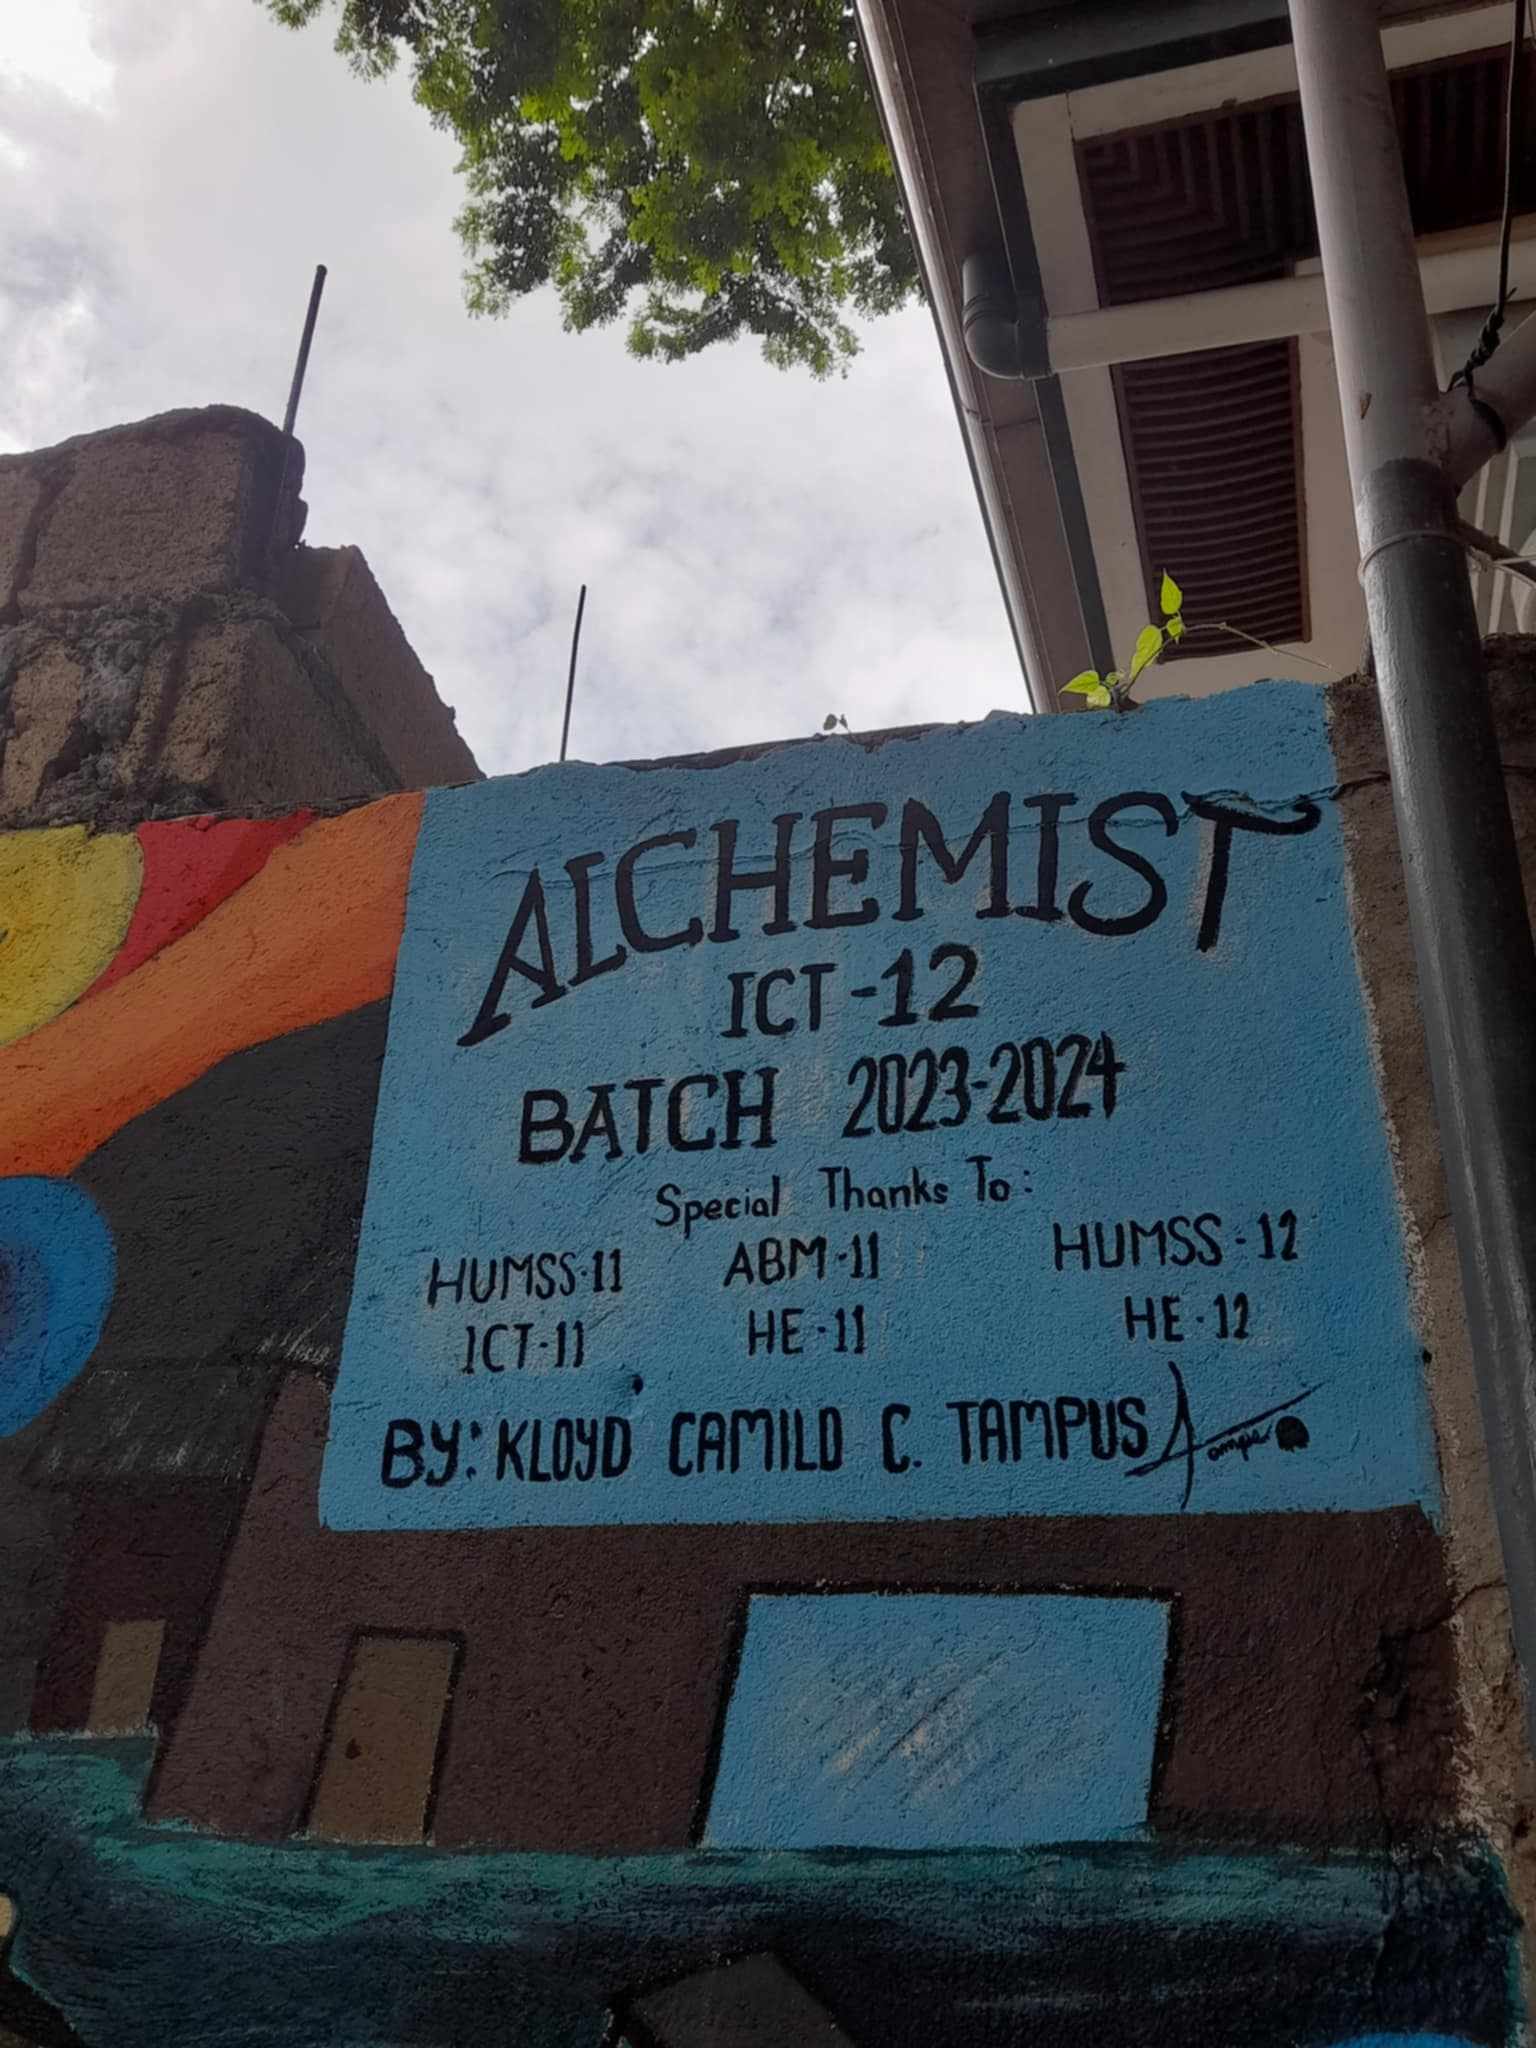 ALCHEMIST
ICT-12
BATCH 2023-2024
Special Thanks To:
HUMSS-11 ABM-11 HUMSS-12
ICT-11 HE-11 HE-12
BY: KLOYD CAMILO C. TAMPUS